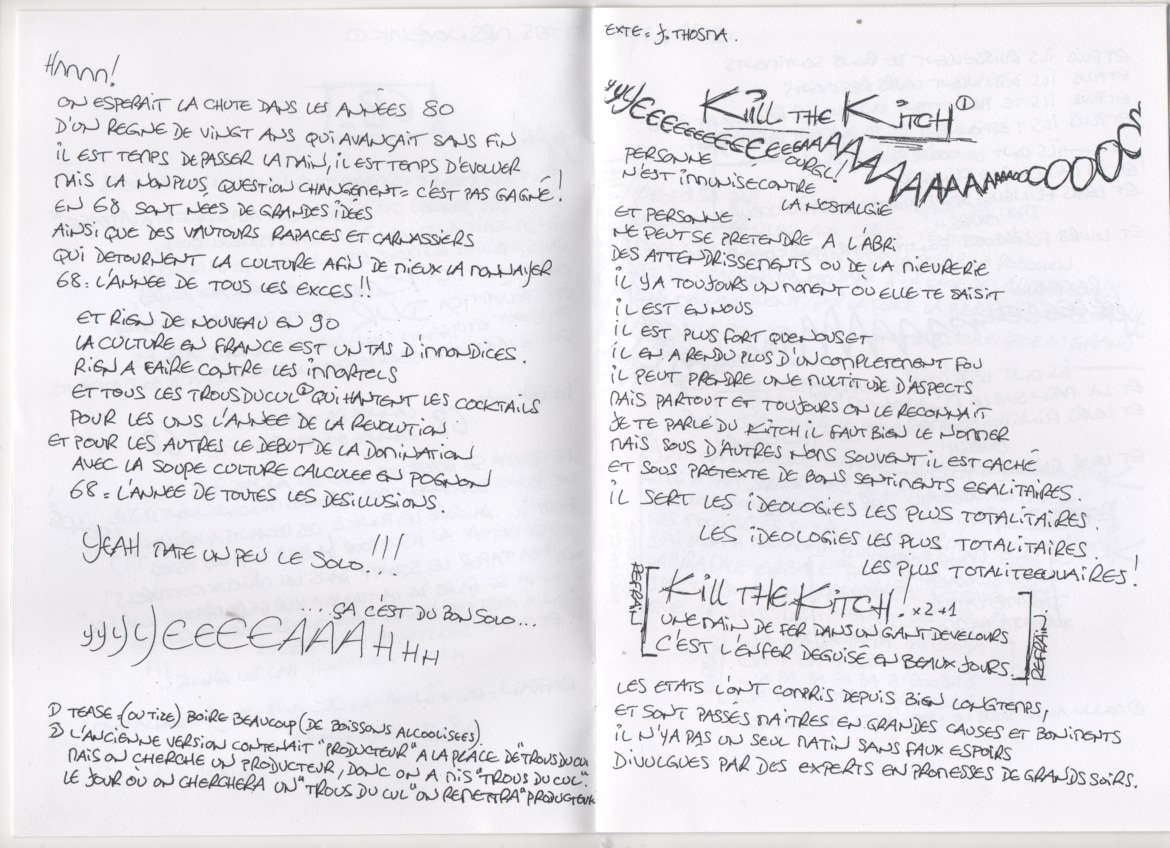 Hnnnn!
ON ESPERAIT LA CHUTE DANS LES ANNÉES 80
D'UN REGNE DE VINGT ANS QUI AVANÇAIT SANS FIN
IL EST TEMPS DE PASSER LA MAIN, IL EST TEMPS D'EVOLUER
MAIS LA NON PLUS, QUESTION CHANGEMENT = C'EST PAS GAGNÉ!
EN 68 SONT NÉES DE GRANDES IDÉES
AINSI QUE DES VAUTOURS RAPACES ET CARNASSIERS
QUI DETOURNENT LA CULTURE AFIN DE MIEUX LA MONNAYER
68 = L'ANNÉE DE TOUS LES EXCES!!
ET RIEN DE NOUVEAU EN 90
LA CULTURE EN FRANCE EST UN TAS D'IMMONDICES.
RIEN A FAIRE CONTRE LES IMMORTELS
ET TOUS LES TROUSDUCUL② QUI HANTENT LES COCKTAILS
POUR LES UNS L'ANNÉE DE LA REVOLUTION
ET POUR LES AUTRES LE DEBUT DE LA DOMINATION
AVEC LA SOUPE CULTURE CALCULEE EN POGNON
68 = L'ANNÉE DE TOUTES LES DESILLUSIONS.
YEAH MATE UN PEU LE SOLO...!!!
.... ÇA C'EST DU BON SOLO...
yyyyÉEEEEAAAHHHH
1) TEASE = (OU TIZE) BOIRE BEAUCOUP (DE BOISSONS ALCOOLISEES)
2) L'ANCIENNE VERSION CONTENAIT "PRODUCTEUR" A LA PLACE DE "TROUS DU CUL
MAIS ON CHERCHE UN PRODUCTEUR, DONC ON A MIS "TROUS DU CUL".
LE JOUR OU ON CHERCHERA UN "TROUS DU CUL" ON REMETTRA "PRODUCTEUR
EXTE = J. THOSMA.
Kill THE KITCH ①
PERSONNE
N'EST IMMUNISE CONTRE
LA NOSTALGIE
ET PERSONNE
NE PEUT SE PRETENDRE A L'ABRI
DES ATTENDRISSEMENTS OU DE LA MIEVRERIE
IL Y A TOUJOURS UN MOMENT OU ELLE TE SAISIT
IL EST EN NOUS
IL EST PLUS FORT QUE NOUS ET
IL EN A RENDU PLUS D'UN COMPLETEMENT FOU
IL PEUT PRENDRE UNE MULTITUDE D'ASPECTS
MAIS PARTOUT ET TOUJOURS ON LE RECONNAIT
JE TE PARLE DU KITCH IL FAUT BIEN LE NOMMER
MAIS SOUS D'AUTRES NOMS SOUVENT IL EST CACHÉ
ET SOUS PRETEXTE DE BONS SENTIMENTS EGALITAIRES.
IL SERT LES IDEOLOGIES LES PLUS TOTALITAIRES.
LES IDEOLOGIES LES PLUS TOTALITAIRES.
LES PLUS TOTALITEEEUAIRES!
REFRAIN
Kill THE KITCH! x2+1
UNE MAIN DE FER DANS UN GANT DE VELOURS
C'EST L'ENFER DEGUISÉ EN BEAUX JOURS.
REFRAIN.
LES ETATS L'ONT COMPRIS DEPUIS BIEN LONGTEMPS,
ET SONT PASSÉS MAITRES EN GRANDES CAUSES ET BONIMENTS
IL N'Y A PAS UN SEUL MATIN SANS FAUX ESPOIRS
DIVULGUES PAR DES EXPERTS EN PROMESSES DE GRANDS SOIRS.